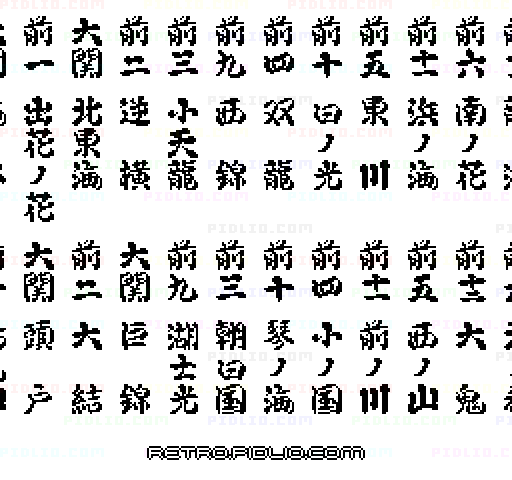 前六
南ノ花
前十一
浜ノ海
前五
東川
前十
白ノ光
前四
双龍
前九
西錦
前三
小天龍
前二
横
大関
北東海
前一
出花ノ花
前十二
大鬼
前五
西ノ山
前十一
前ノ川
前四
小ノ国
前十
琴ノ海
前三
朝日国
前九
湖士光
大関
巨錦
前二
大結
大関
頭戸
RETRO.PIOLIO.COM